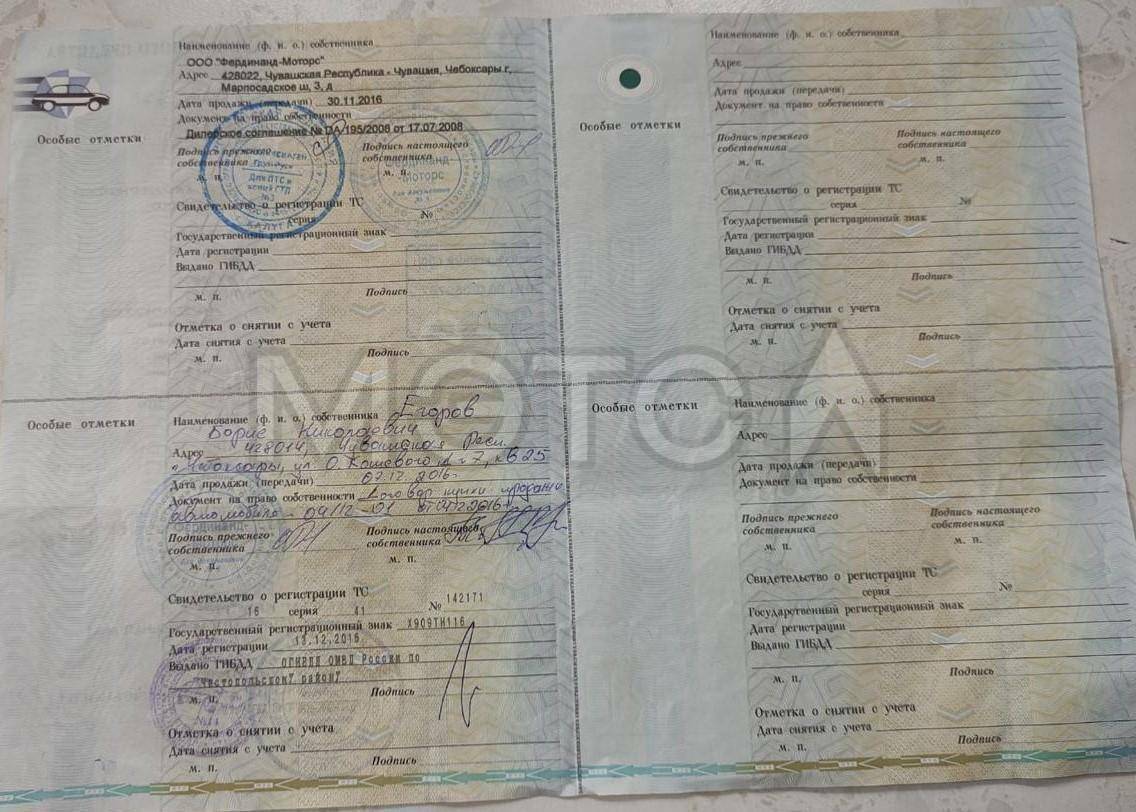 Особые отметки
Наименование (ф. и. о.) собственника
ООО "Фердинанд-Моторс"
Адрес 428022, Чувашская Республика - Чувашия, Чебоксары г,
Марпосадское ш, 3, д
Дата продажи (передачи) 30.11.2016
Документ на право собственности
Дилерское соглашение № DA/195/2008 от 17.07.2008
Подпись прежнего собственника
Подпись настоящего собственника
м. п.
м. п.
Фердинанд-Моторс
Для ПТС
КАЛУГА
Свидетельство о регистрации ТС
серия №
Государственный регистрационный знак
Дата регистрации
Выдано ГИБДД
м. п. Подпись
Отметка о снятии с учета
Дата снятия с учета
м. п. Подпись
Особые отметки
Наименование (ф. и. о.) собственника
Адрес
Дата продажи (передачи)
Документ на право собственности
Подпись прежнего собственника
Подпись настоящего собственника
м. п.
м. п.
Свидетельство о регистрации ТС
серия №
Государственный регистрационный знак
Дата регистрации
Выдано ГИБДД
м. п. Подпись
Отметка о снятии с учета
Дата снятия с учета
м. п. Подпись
Особые отметки
Наименование (ф. и. о.) собственника Егоров
Борис Николаевич
Адрес 428014, Чувашская Респ.
Чебоксары, ул. О. Кошевого
Дата продажи (передачи) 02.12.2016
Документ на право собственности Договор купли продажи
автомобиля
Подпись прежнего собственника
Подпись настоящего собственника
м. п.
м. п.
Свидетельство о регистрации ТС
16 серия 41 № 142171
Государственный регистрационный знак Х909ТН116
Дата регистрации 13.12.2016
Выдано ГИБДД ОГИБДД ОМВД России по
м. п. Подпись
Отметка о снятии с учета
Дата снятия с учета
м. п. Подпись
Особые отметки
Наименование (ф. и. о.) собственника
Адрес
Дата продажи (передачи)
Документ на право собственности
Подпись прежнего собственника
Подпись настоящего собственника
м. п.
м. п.
Свидетельство о регистрации ТС
серия №
Государственный регистрационный знак
Дата регистрации
Выдано ГИБДД
м. п. Подпись
Отметка о снятии с учета
Дата снятия с учета
м. п. Подпись